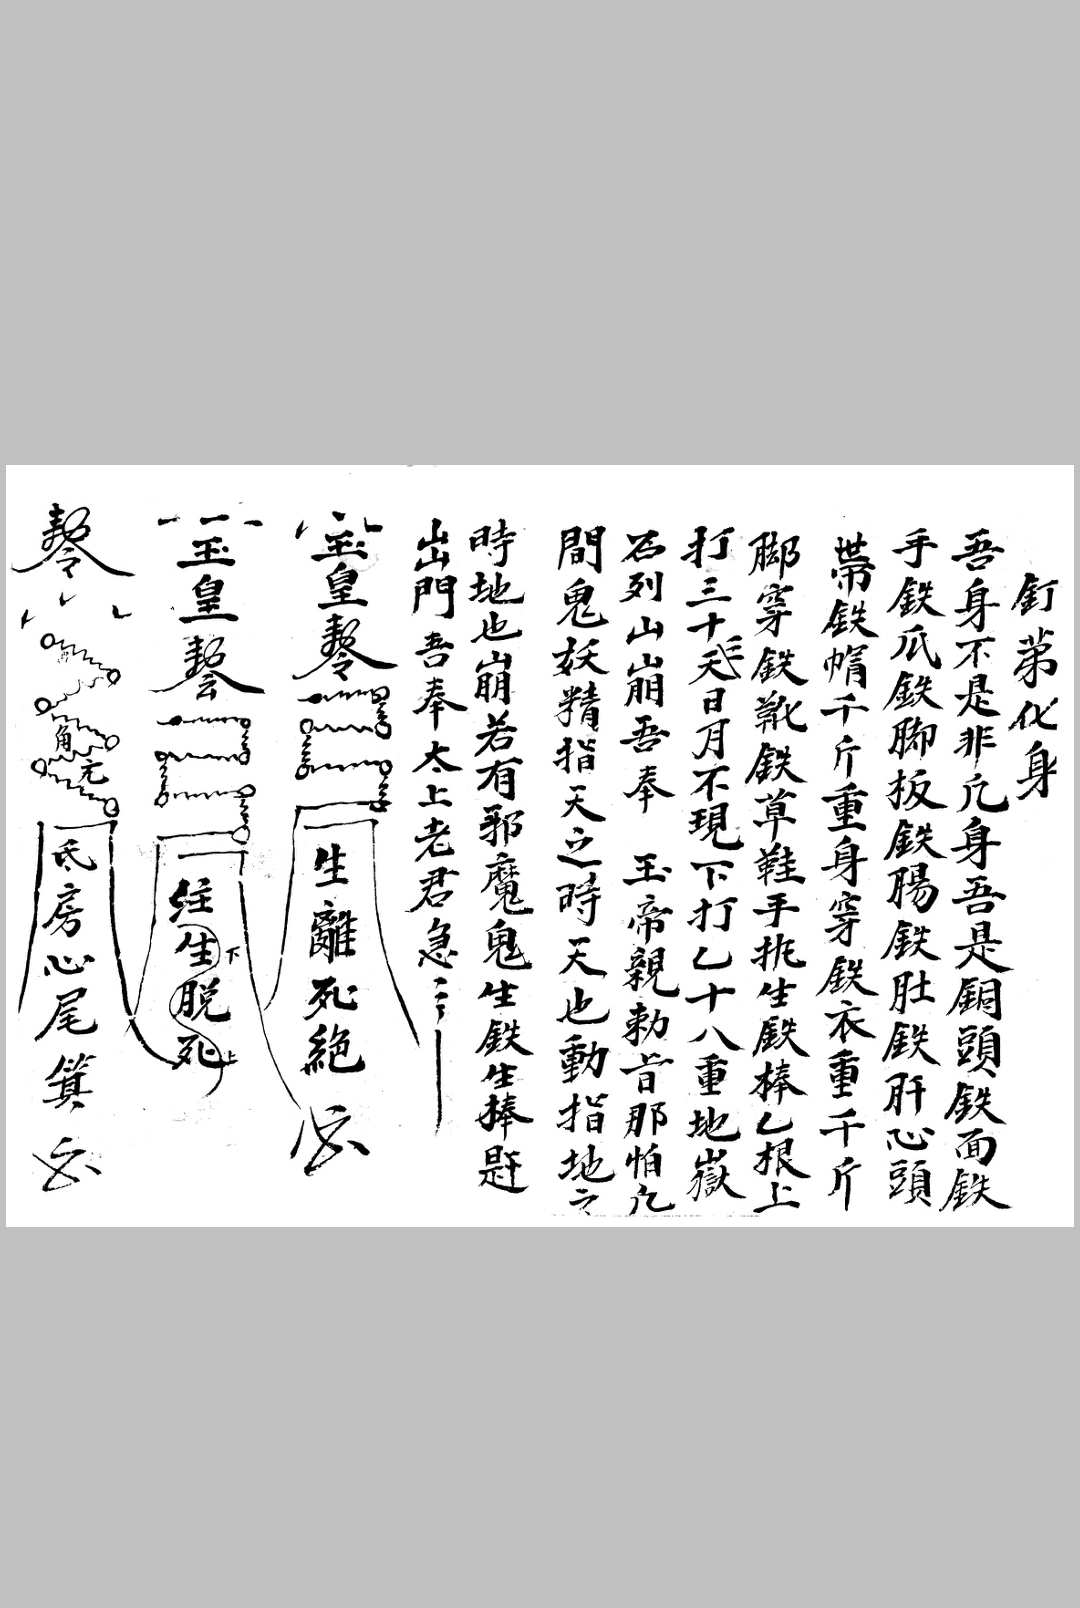 釘苐化身
吾身不是非凢身吾是銅頭鉄面鉄
手鉄爪鉄脚板鉄腸鉄肚鉄肝心頭
帶鉄帽千斤重身穿鉄衣重千斤
脚穿鉄靴鉄草鞋手扼生鉄棒乙根上
打三十三天日月不現下打乙十八重地嶽
石列山崩吾奉 玉帝親勅旨那怕凢
間鬼妖精指天之時天也動指地之
時地也崩若有邪魔鬼生鉄生捧
出山門吾奉太上老君急
玉皇
生離死絕
玉皇
往生脱死
下
上
角
亢
氐房心尾箕